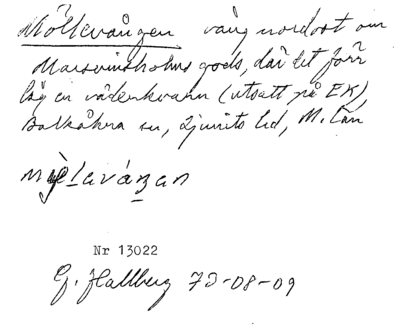 Möllevången vång nordost om
Marsvinsholms gods, där det förr
låg en väderkvarn (utsatt på EK)
Balkåkra sn, Ljunits hd, M. län
Nr 13022
G. Hallberg 73-08-09